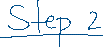 Step 2